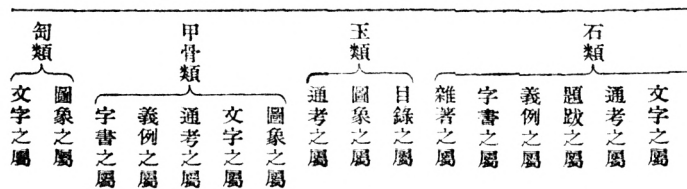 石類
文字之屬
通考之屬
題跋之屬
義例之屬
字書之屬
雜著之屬
玉類
目錄之屬
圖象之屬
通考之屬
甲骨類
圖象之屬
文字之屬
通考之屬
義例之屬
字書之屬
匋類
圖象之屬
文字之屬